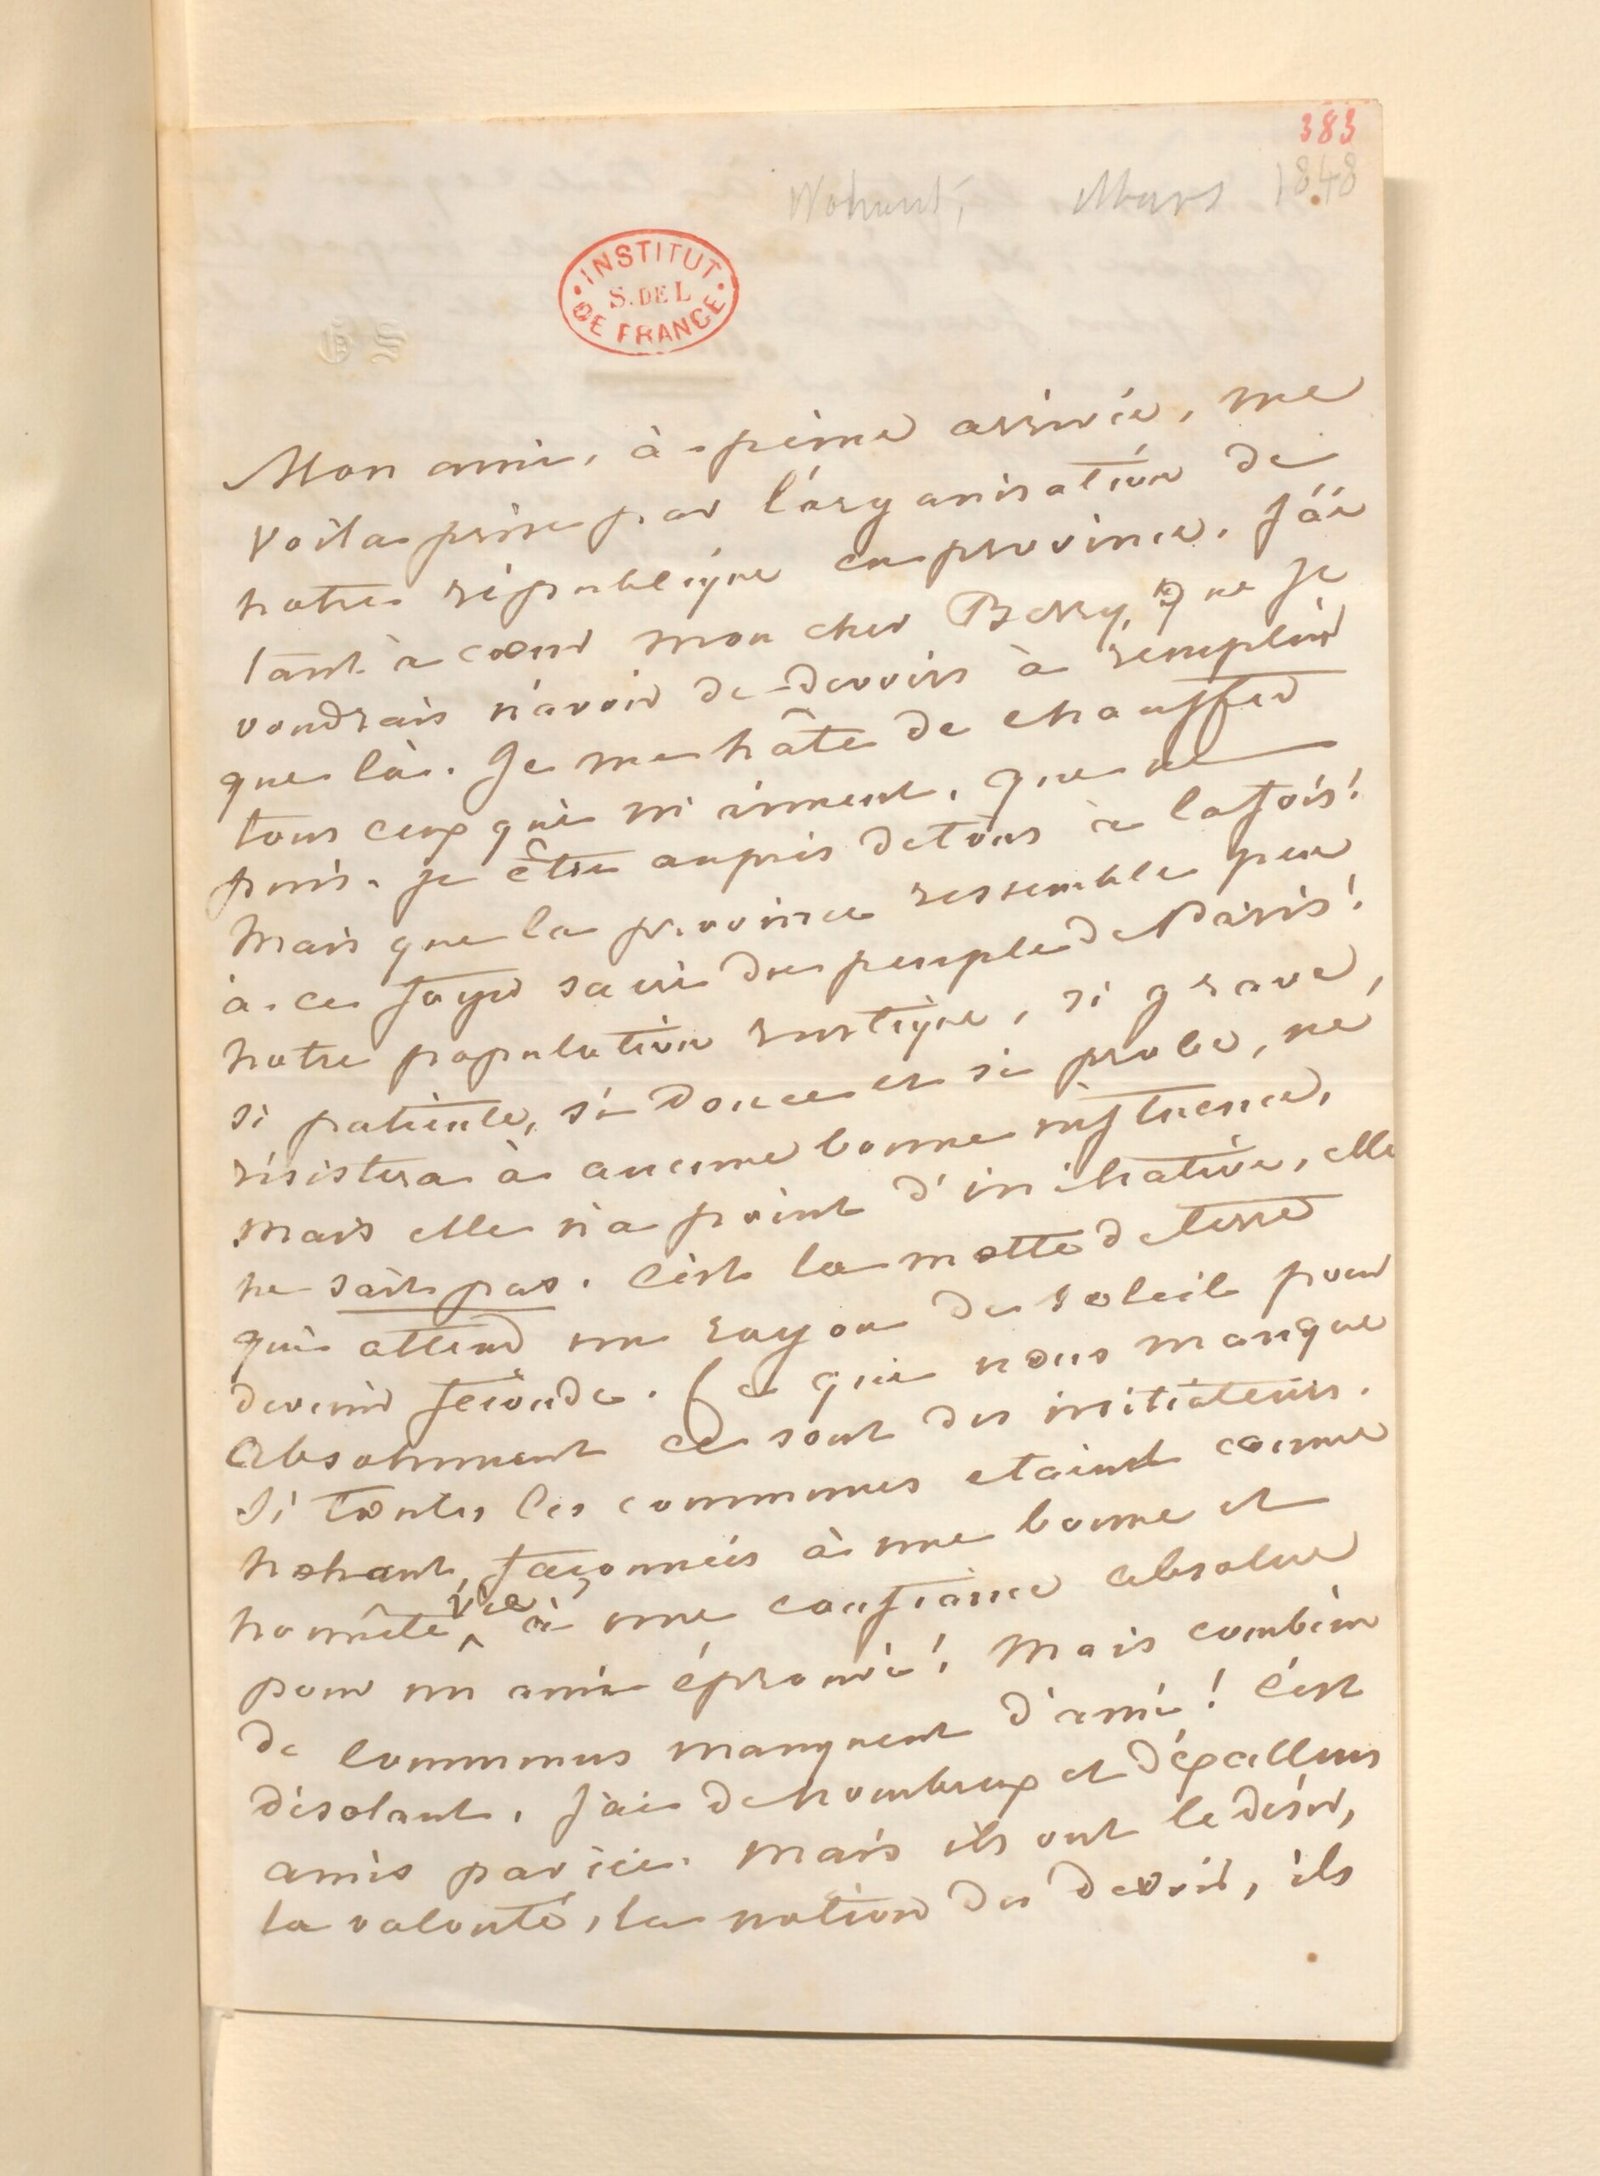 383
Nohant, Mars 1848
INSTITUT
S. DE L
DE FRANCE
G S
Mon ami, à peine arrivée, me
voila prise par l'organisation de
notre république en province. J'ai
tant à cœur mon cher Berry, que je
voudrais n'avoir de devoirs à remplir
que là. Je me hâte de chauffer
tous ceux qui m'aiment, que ne
puis-je être auprès de tous à la fois!
Mais que la province ressemble peu
à ce foyer sacré du peuple de Paris!
Notre population rustique, si grave,
si patiente, si douce et si probe, ne
résistera à aucune bonne influence,
mais elle n'a point d'initiative, elle
ne sait pas. C'est la motte de terre
qui attend un rayon de soleil pour
devenir féconde. Ce qui nous manque
absolument ce sont des initiateurs.
Si toutes les communes etaient comme
Nohant, façonnées à une bonne et
honnête vie, à une confiance absolue
pour un ami éprouvé! Mais combien
de communes manquent d'ami! C'est
désolant. J'ai de nombreux et d'excellens
amis par ici. Mais ils ont le désir,
la volonté, la notion du devoir, ils